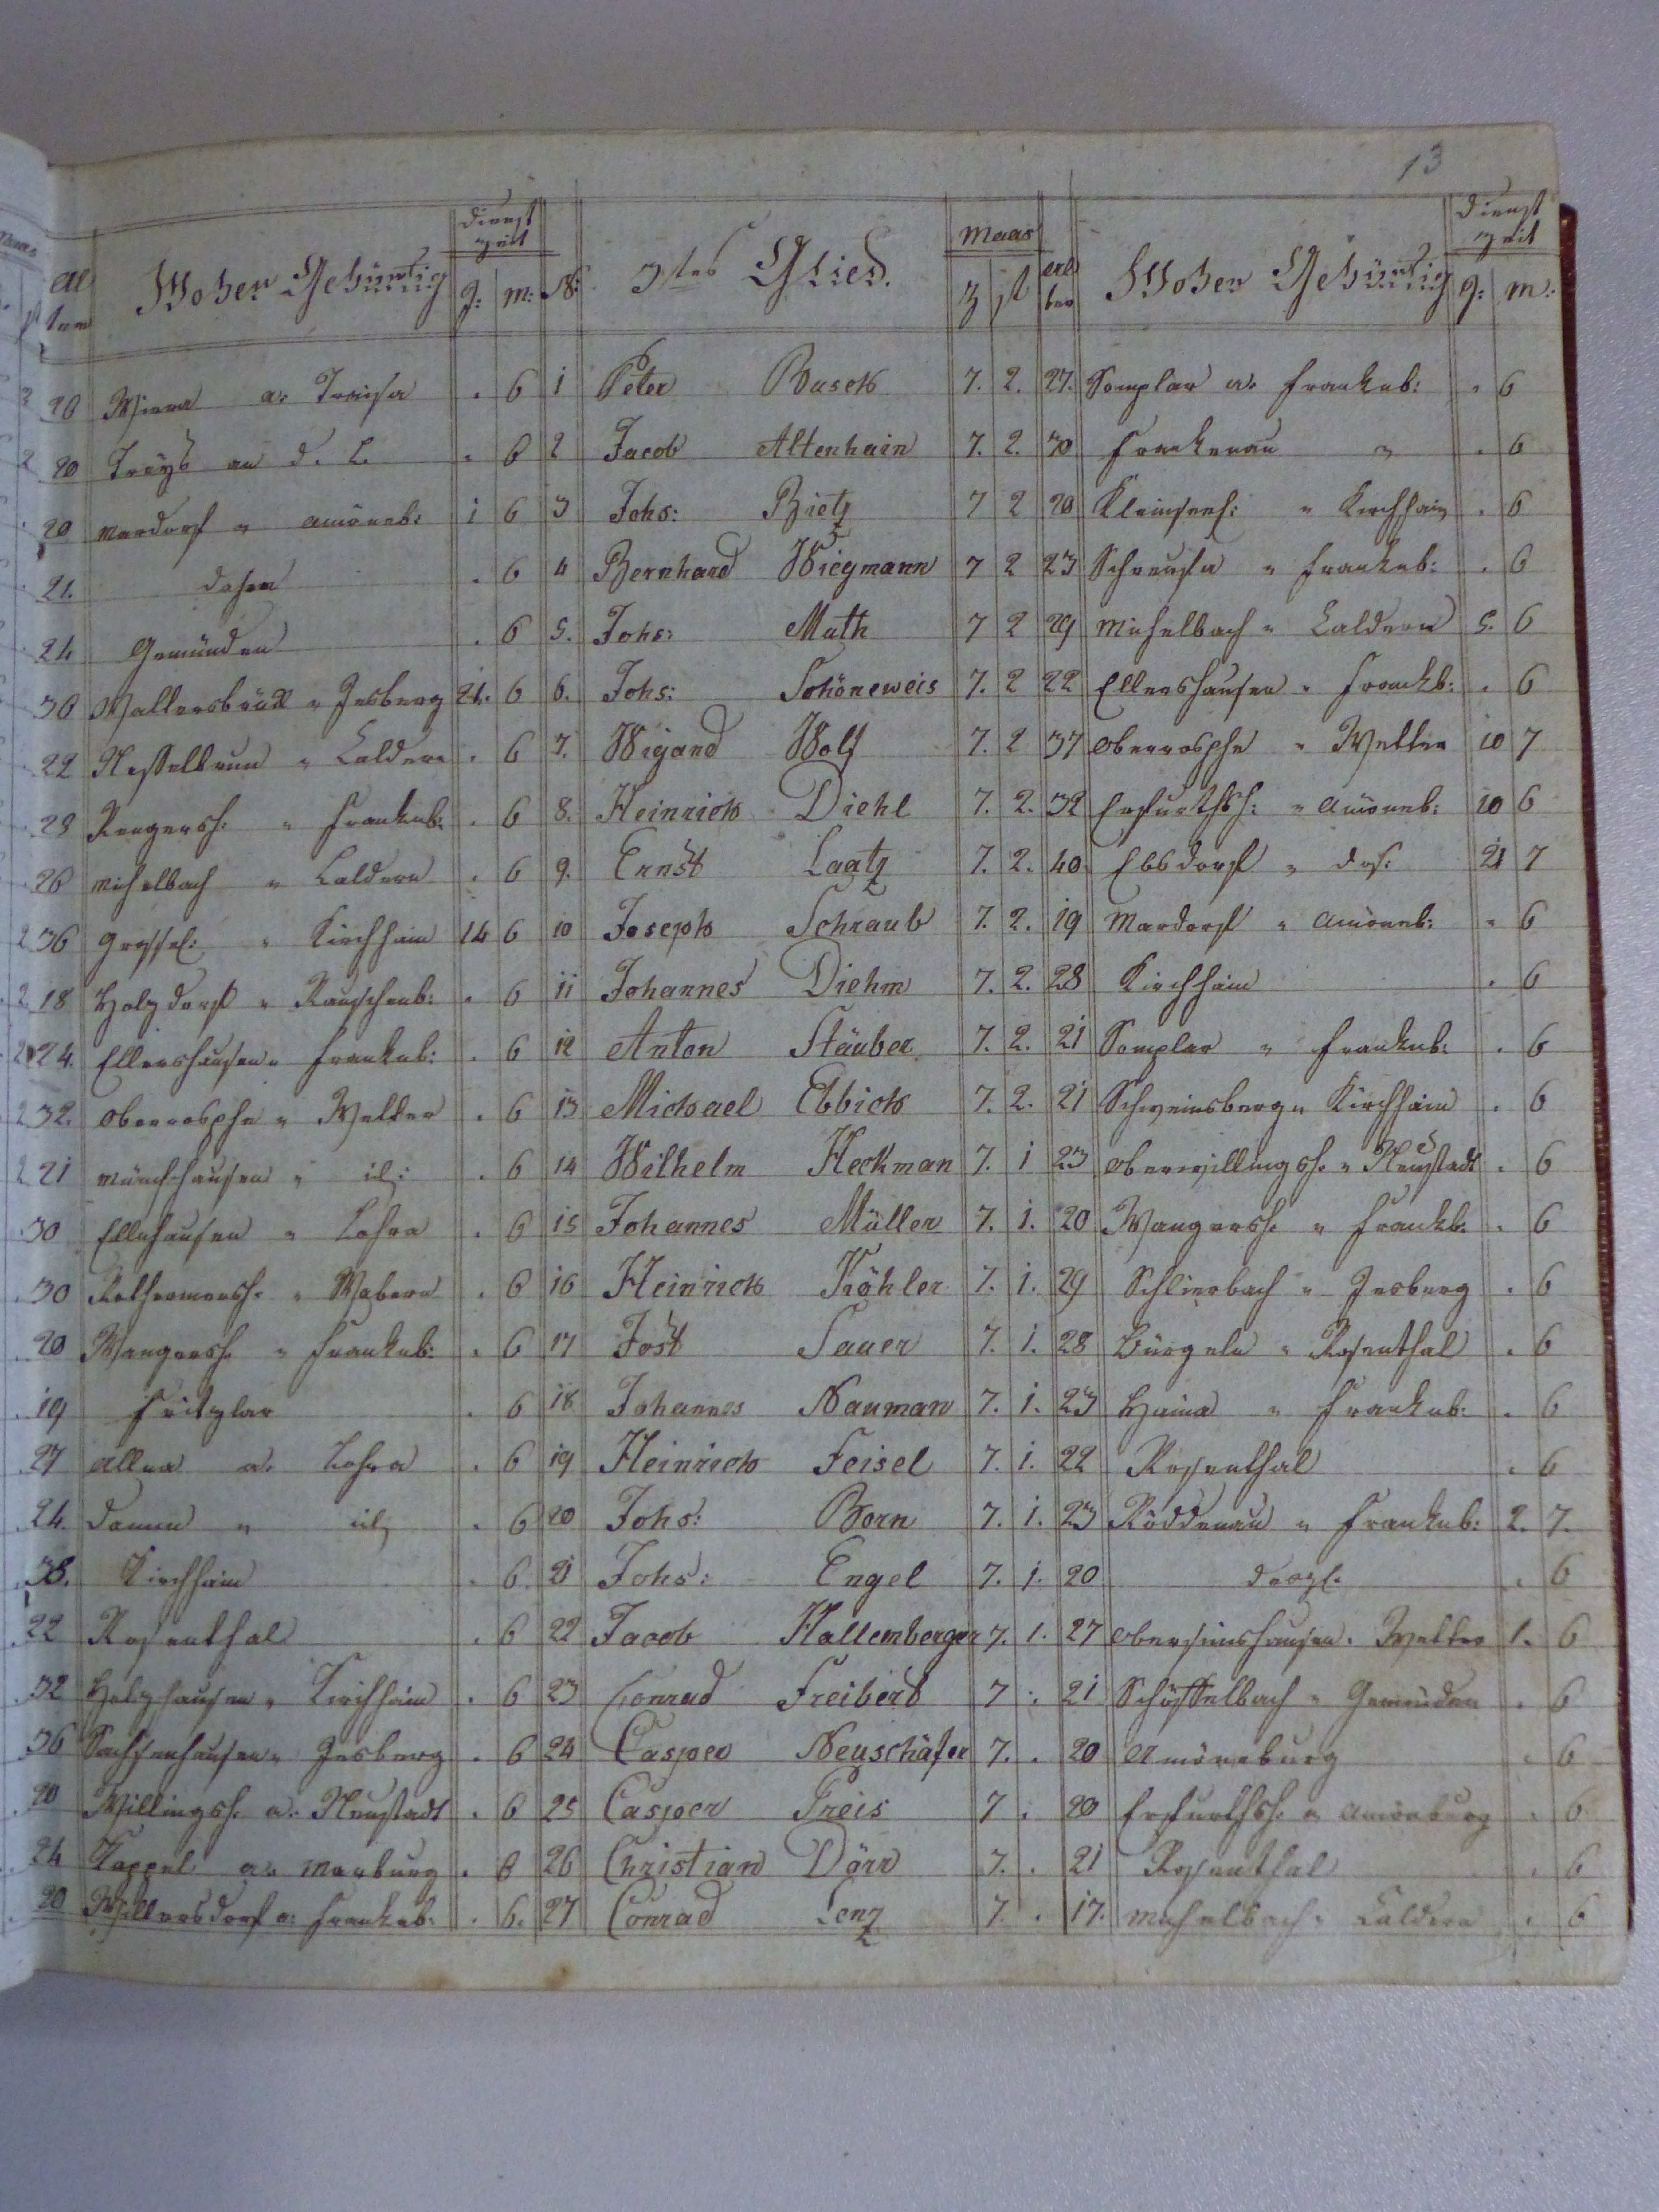 13
Al Woher Gebürtig Dienst zeit J: M: N: 3tes Glied. Maas Z st alter Woher Gebürtig Dienst zeit J: M:
20 Wiera a: Traisa . 6 1 Peter Busch 7. 2. 27. Somplar a. Frankenb: . 6
20 Treys an d. L. . 6 2 Jacob Altenhain 7. 2. 30 Frankenau " . 6
20 Mardorf " Amöneb: 1 6 3 Johs: Bietz 7 2 20 Kleinseelh: " Kirchhain . 6
21. daher . 6 4 Bernhard Wiegmann 7 2 23 Schreufa " Frankenb: . 6
24 Gemünden . 6 5. Johs: Muth 7 2 29 Michelbach " Caldern 5. 6
30 Waltersbrück " Jesberg 21. 6 6. Johs: Schöneweis 7. 2 22 Ellershausen " Frankb: . 6
22 Hesselbrun " Caldern . 6 7. Wigand Wolf 7. 2 37 Oberrosphe " Wetter 10 7
29 Rengersh. " Frankenb: . 6 8. Heinrich Diehl 7. 2. 32 Erfurthsh: " Amöneb: 10 6
26 Michelbach " Caldern . 6 9. Ernst Laatz 7. 2. 40 Ebsdorf " das: 21 7
2 36 Grossel: " Kirchhain 14 6 10 Joseph Schraub 7. 2. 19 Mardorf " Amöneb: " 6
2 18 Holzdorf " Rauschenb: . 6 11 Johannes Diehm 7. 2. 28 Kirchhain . 6
2 24. Ellershausen " Frankenb: . 6 12 Anton Stäuber 7. 2. 21 Somplar " Frankenb: . 6
2 32. Oberrosphe " Wetter . 6 13 Michael Ebbich 7. 2. 21 Schweinsberg " Kirchhain . 6
2 21 Münchhausen " id: . 6 14 Wilhelm Heckman 7. 1 23 Oberwillingsh. " Neustadt . 6
30 Ellnhausen " Lohra . 6 15 Johannes Müller 7. 1. 20 Wangersh. " Frankb: . 6
30 Rothermersh. " Wabern . 6 16 Heinrich Köhler 7. 1. 29 Schlierbach " Jesberg . 6
20 Wangersh. " Frankenb: . 6 17 Jost Sauer 7. 1. 28 Bürgeln " Rosenthal . 6
19 Fritzlar . 6 18 Johannes Nauman 7. 1. 23 Haina " Frankenb: . 6
27 Allna a. Lohra . 6 19 Heinrich Feisel 7. 1. 22 Rosenthal . 6
24. Damm " id . 6 20 Johs: Born 7. 1. 23 Röddenau " Frankenb: 2. 7.
38. Kirchhain . 6 21 Johs: Engel 7. 1. 20 desgl. . 6
22 Rosenthal . 6 22 Jacob Hallemberger 7. 1. 27 Obersimshausen. Wetter 1. 6
32 Holzhausen " Kirchhain . 6 23 Conrad Freibert 7 : 21 Schiffelbach " Gemünden . 6
36 Sachsenhausen " Jesberg . 6 24 Casper Neuschäfer 7. . 20 Amöneburg . 6
20 Willingsh. a. Neustadt . 6 25 Casper Preis 7 . 20 Erfurthsh. " Amönburg . 6
24 Kappel a. Marburg . 6 26 Christian Dörr 7. . 21 Rosenthal . 6
20 Willersdorf a: Frankenb: . 6. 27 Conrad Lenz 7. . 17. Michelbach " Caldern . 6